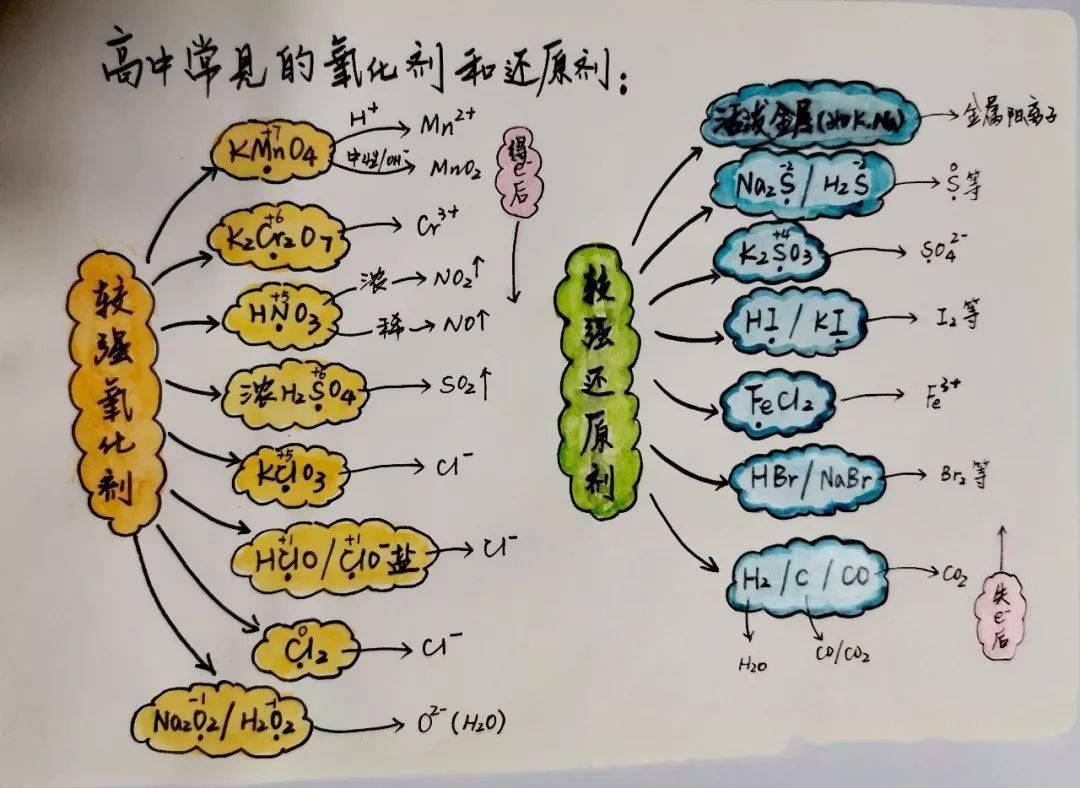 高中常见的氧化剂和还原剂：
较强氧化剂
+7
KMnO4
H+
Mn2+
中性/OH-
MnO2
得e-后
+6
K2Cr2O7
Cr3+
+5
HNO3
浓
NO2↑
稀
NO↑
+6
浓H2SO4
SO2↑
+5
KClO3
Cl-
+1 +1
HClO/ClO-盐
Cl-
0
Cl2
Cl-
-1 -1
Na2O2/H2O2
O2-(H2O)
较强还原剂
活泼金属(如K.Na)
金属阳离子
-2 -2
Na2S/H2S
0
S等
+4
K2SO3
SO42-
HI/KI
I2等
FeCl2
Fe3+
HBr/NaBr
Br2等
H2/C/CO
CO2
H2O
CO/CO2
失e-后